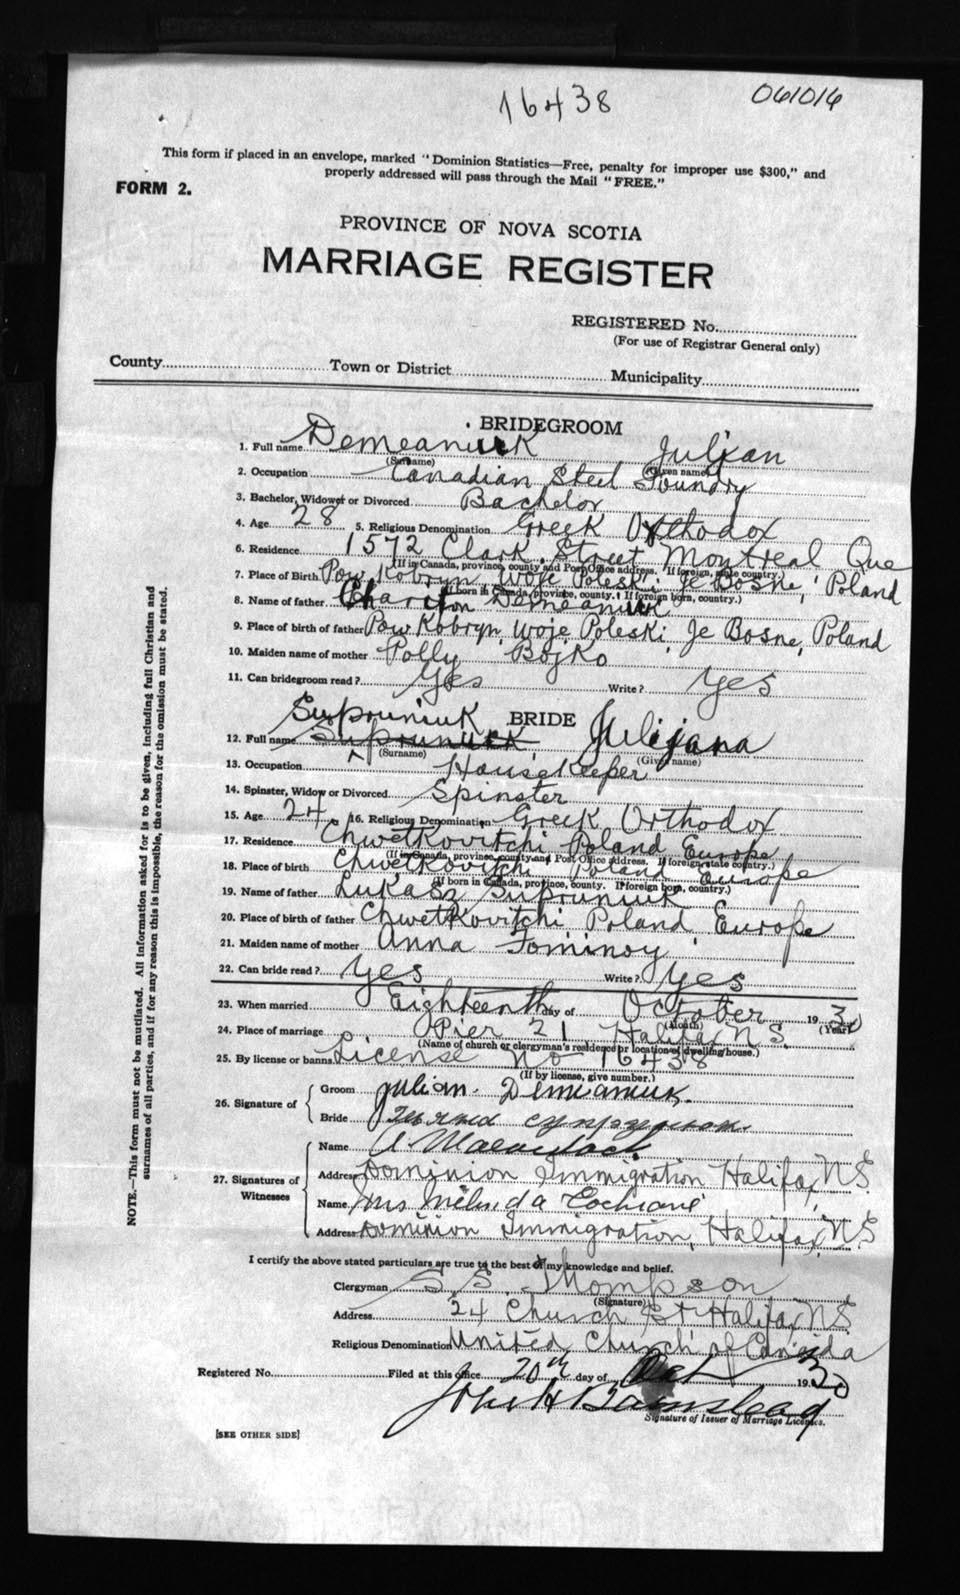 16438
061016
This form if placed in an envelope, marked "Dominion Statistics—Free, penalty for improper use $300," and
properly addressed will pass through the Mail "FREE."
FORM 2.
PROVINCE OF NOVA SCOTIA
MARRIAGE REGISTER
REGISTERED No.
(For use of Registrar General only)
County Town or District Municipality
BRIDEGROOM
1. Full name Demeaniuk Julian
(Surname) (Given name)
2. Occupation Canadian Steel Foundry
3. Bachelor, Widower or Divorced Bachelor
4. Age 28 5. Religious Denomination Greek Orthodox
6. Residence 1572 Clark Street Montreal Que
(If in Canada, province, county and Post Office address. If foreign, state country.)
7. Place of Birth Pow Kobryn, Woje Poleski, Je Bosne, Poland
(If born in Canada, province, county. If foreign born, country.)
8. Name of father Chariton Demeaniuk
9. Place of birth of father Pow Kobryn, Woje Poleski, Je Bosne, Poland
10. Maiden name of mother Polly Bojko
11. Can bridegroom read? Yes Write? Yes
Supruniuk BRIDE
12. Full name Supruniuk Julijana
(Surname) (Given name)
13. Occupation Housekeeper
14. Spinster, Widow or Divorced Spinster
15. Age 24 16. Religious Denomination Greek Orthodox
17. Residence Chwetkovitchi Poland Europe
(If in Canada, province, county and Post Office address. If foreign state country.)
18. Place of birth Chwetkovitchi Poland Europe
(If born in Canada, province, county. If foreign born, country.)
19. Name of father Lukasz Supruniuk
20. Place of birth of father Chwetkovitchi Poland Europe
21. Maiden name of mother Anna Fominoy
22. Can bride read? Yes Write? Yes
23. When married Eighteenth day of October 19 30
(Month) (Year)
24. Place of marriage Pier 21 Halifax N.S.
(Name of church or clergyman's residence or location of dwelling house.)
25. By license or banns License No 16438
(If by license, give number.)
26. Signature of
Groom Julian Demianiuk.
Bride
27. Signatures of Witnesses
Name
Address Dominion Immigration Halifax, N.S.
Name Mrs Melinda Cochrane
Address Dominion Immigration, Halifax, N.S
I certify the above stated particulars are true to the best of my knowledge and belief.
Clergyman S. S. Thompson
(Signature)
Address 24 Church St Halifax N.S.
Religious Denomination United Church of Canada
Registered No. Filed at this office 20th day of Oct 1930
John H Barnstead
Signature of Issuer of Marriage Licenses.
[SEE OTHER SIDE]
NOTE.—This form must not be mutilated. All information asked for is to be given, including full Christian and
surnames of all parties, and if for any reason this is impossible, the reason for the omission must be stated.